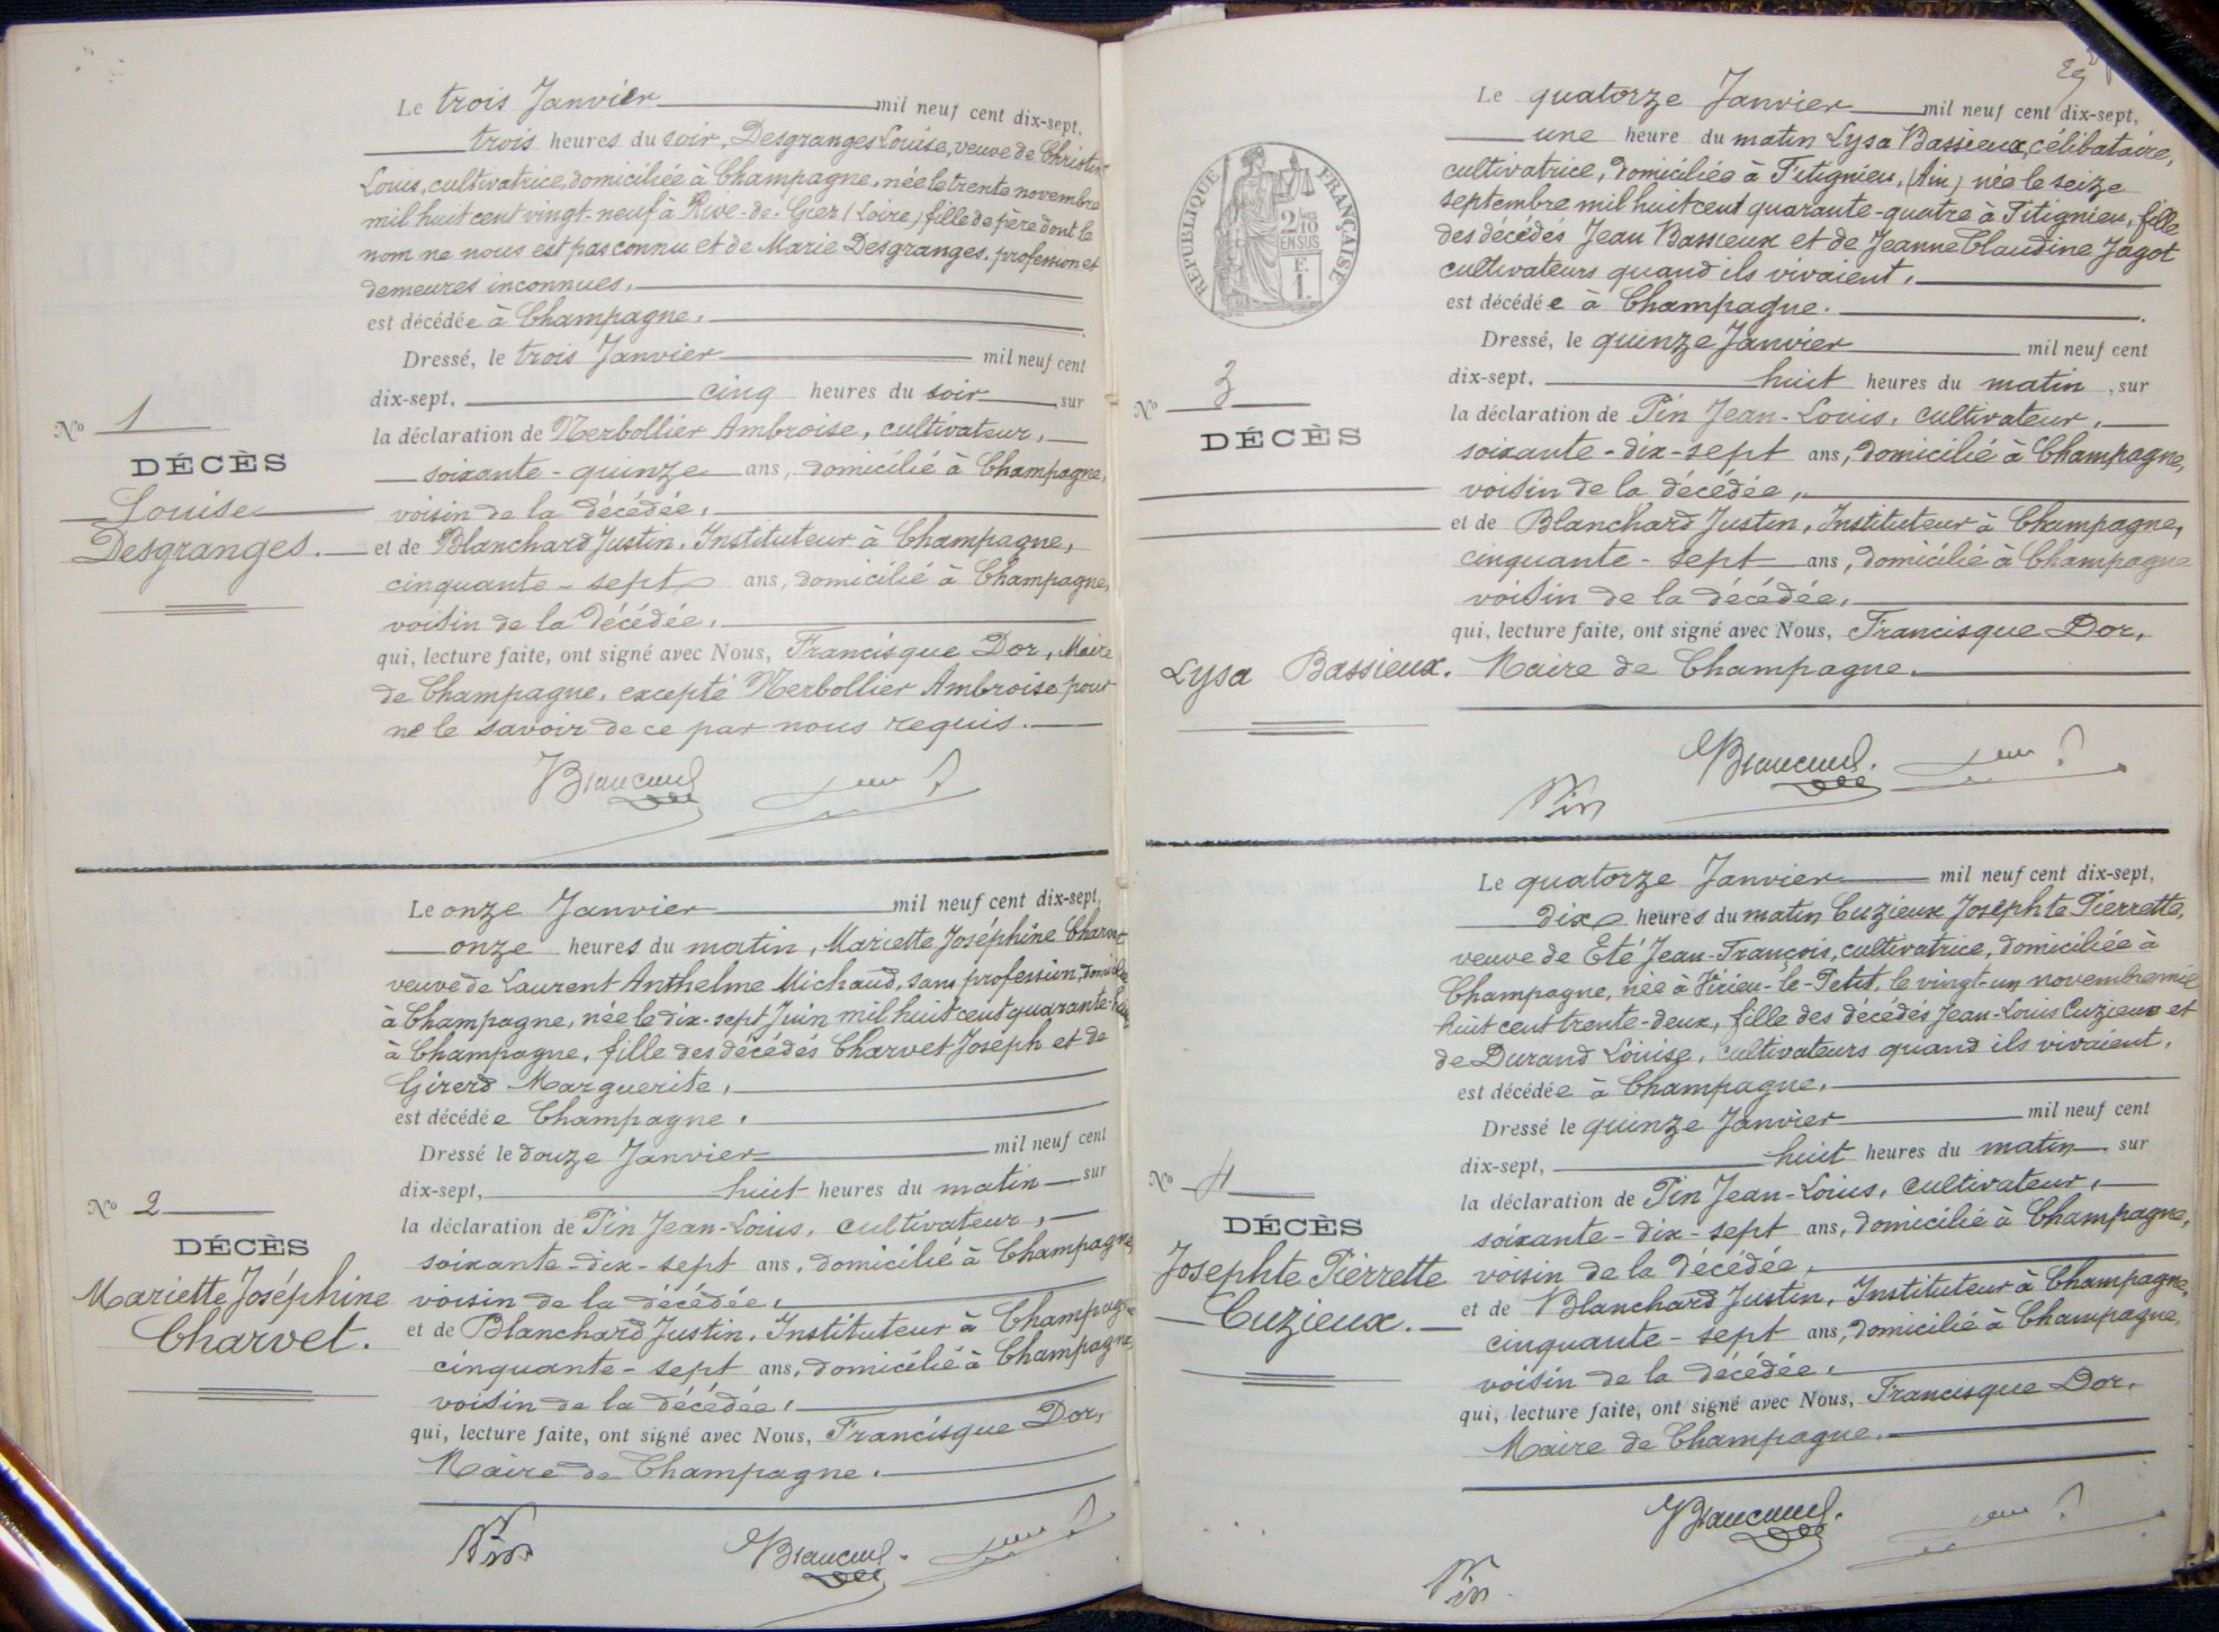 Le trois Janvier mil neuf cent dix-sept,
trois heures du soir, Desgranges Louise, veuve de Christin
Louis, cultivatrice, domiciliée à Champagne, née le trente novembre
mil huit cent vingt-neuf à Rive-de-Gier (Loire) fille de père dont le
nom ne nous est pas connu et de Marie Desgranges, profession et
demeures inconnues,
est décédée à Champagne.
Dressé, le trois Janvier mil neuf cent
dix-sept, cinq heures du soir, sur
la déclaration de Merbollier Ambroise, cultivateur,
soixante-quinze ans, domicilié à Champagne,
voisin de la décédée,
et de Blanchard Justin, Instituteur à Champagne,
cinquante-sept ans, domicilié à Champagne,
voisin de la décédée,
qui, lecture faite, ont signé avec Nous, Francisque Dor, Maire
de Champagne, excepté Merbollier Ambroise pour
ne le savoir de ce par nous requis.
No 1
DÉCÈS
Louise
Desgranges.
Le onze Janvier mil neuf cent dix-sept,
onze heures du matin, Mariette Joséphine Charvet
veuve de Laurent Anthelme Michaud, sans profession,
à Champagne, née le dix-sept Juin mil huit cent quarante
à Champagne, fille des décédés Charvet Joseph et de
Girerd Marguerite,
est décédée Champagne.
Dressé le douze Janvier mil neuf cent
dix-sept, huit heures du matin sur
la déclaration de Pin Jean-Louis, cultivateur,
soixante-dix-sept ans, domicilié à Champagne,
voisin de la décédée,
et de Blanchard Justin, Instituteur à Champagne
cinquante-sept ans, domicilié à Champagne,
voisin de la décédée,
qui, lecture faite, ont signé avec Nous, Francisque Dor,
Maire de Champagne.
Pin
No 2
DÉCÈS
Mariette Joséphine
Charvet.
Le quatorze Janvier mil neuf cent dix-sept,
une heure du matin Lysa Bassieux, célibataire,
cultivatrice, domiciliée à Titignieu, (Ain) née le seize
septembre mil huit cent quarante-quatre à Titignieu, fille
des décédés Jean Bassieux et de Jeanne Claudine Jagot
cultivateurs quand ils vivaient,
est décédée à Champagne.
Dressé, le quinze Janvier mil neuf cent
dix-sept, huit heures du matin, sur
la déclaration de Pin Jean-Louis, cultivateur,
soixante-dix-sept ans, domicilié à Champagne,
voisin de la décédée,
et de Blanchard Justin, Instituteur à Champagne,
cinquante-sept ans, domicilié à Champagne
voisin de la décédée,
qui, lecture faite, ont signé avec Nous, Francisque Dor,
Maire de Champagne.
Pin
RÉPUBLIQUE FRANÇAISE
2/10
EN SUS
F.
1.
No 3
DÉCÈS
Lysa Bassieux.
Le quatorze Janvier mil neuf cent dix-sept,
dix heures du matin Cuzieux Josephte Pierrette,
veuve de Eté Jean-François, cultivatrice, domiciliée à
Champagne, née à Virieu-le-Petit, le vingt-un novembre mil
huit cent trente-deux, fille des décédés Jean-Louis Cuzieux et
de Durand Louise, cultivateurs quand ils vivaient,
est décédée à Champagne.
Dressé le quinze Janvier mil neuf cent
dix-sept, huit heures du matin sur
la déclaration de Pin Jean-Louis, cultivateur,
soixante-dix-sept ans, domicilié à Champagne,
voisin de la décédée,
et de Blanchard Justin, Instituteur à Champagne,
cinquante-sept ans, domicilié à Champagne,
voisin de la décédée,
qui, lecture faite, ont signé avec Nous, Francisque Dor,
Maire de Champagne.
Pin
No 4
DÉCÈS
Josephte Pierrette
Cuzieux.